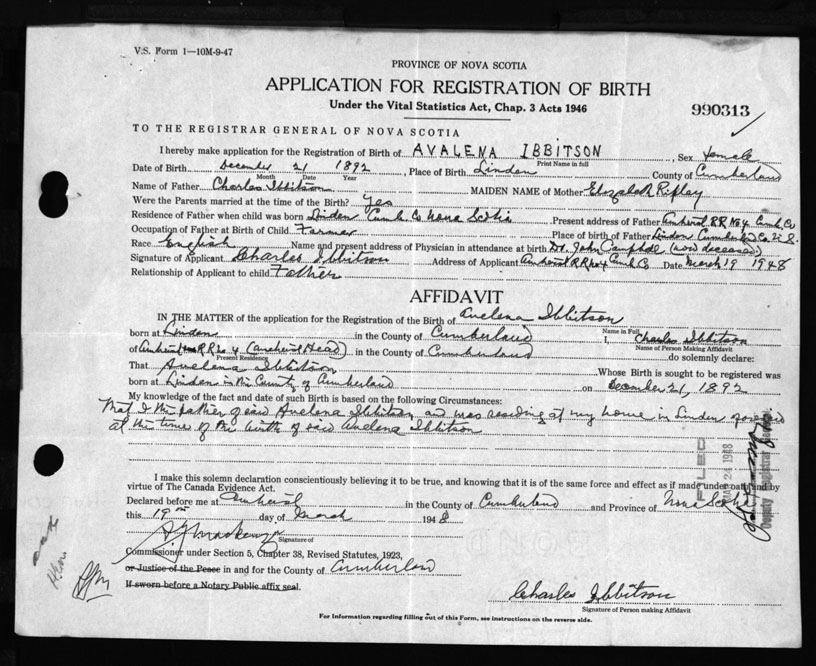 V.S. Form 1—10M-9-47
PROVINCE OF NOVA SCOTIA
APPLICATION FOR REGISTRATION OF BIRTH
Under the Vital Statistics Act, Chap. 3 Acts 1946
990313
TO THE REGISTRAR GENERAL OF NOVA SCOTIA
I hereby make application for the Registration of Birth of AVALENA IBBITSON, Sex female
Print Name in full
Date of Birth December 21 1892, Place of Birth Linden County of Cumberland
Month Date Year
Name of Father Charles Ibbitson MAIDEN NAME of Mother Elizabeth Ripley
Were the Parents married at the time of the Birth? Yes
Residence of Father when child was born Linden Cumb. Co Nova Scotia Present address of Father Amherst RR No 4 Cumb. Co
Occupation of Father at Birth of Child Farmer Place of birth of Father Linden Cumberland Co. N.S.
Race English Name and present address of Physician in attendance at birth Dr. John Campbell (now deceased)
Signature of Applicant Charles Ibbitson Address of Applicant Amherst RR No 4 Cumb Co Date March 19 1948
Relationship of Applicant to child Father
AFFIDAVIT
IN THE MATTER of the application for the Registration of the Birth of Avelena Ibbitson
Name in Full
born at Linden in the County of Cumberland I, Charles Ibbitson
Name of Person Making Affidavit
of Amherst RR No 4 (Amherst Head) in the County of Cumberland do solemnly declare:
Present Residence
That Avelena Ibbitson Whose Birth is sought to be registered was
born at Linden in the County of Cumberland on December 21, 1892
My knowledge of the fact and date of Birth is based on the following Circumstances:
That I the father of said Avelena Ibbitson and was residing at my home in Linden
at the time of the birth of said Avelena Ibbitson
I make this solemn declaration conscientiously believing it to be true, and knowing that it is of the same force and effect as if made under oath and by
virtue of The Canada Evidence Act.
Declared before me at Amherst in the County of Cumberland and Province of Nova Scotia
this 19th day of March 1948
Signature of
Commissioner under Section 5, Chapter 38, Revised Statutes, 1923,
or Justice of the Peace in and for the County of Cumberland
If sworn before a Notary Public affix seal.
Charles Ibbitson
Signature of Person making Affidavit
For Information regarding filling out of this Form, see instructions on the reverse side.
FILED
MAR 24 1948
Deputy Registrar General